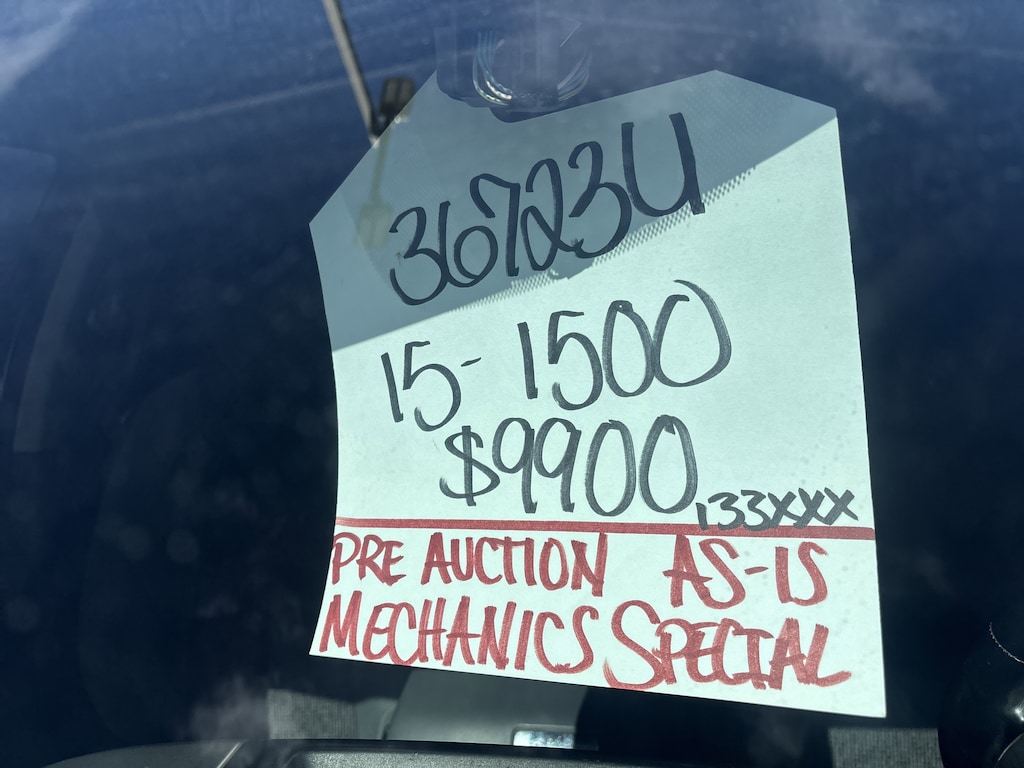 36723U
15-1500
$9900
133XXX
PRE AUCTION AS-IS
MECHANICS SPECIAL